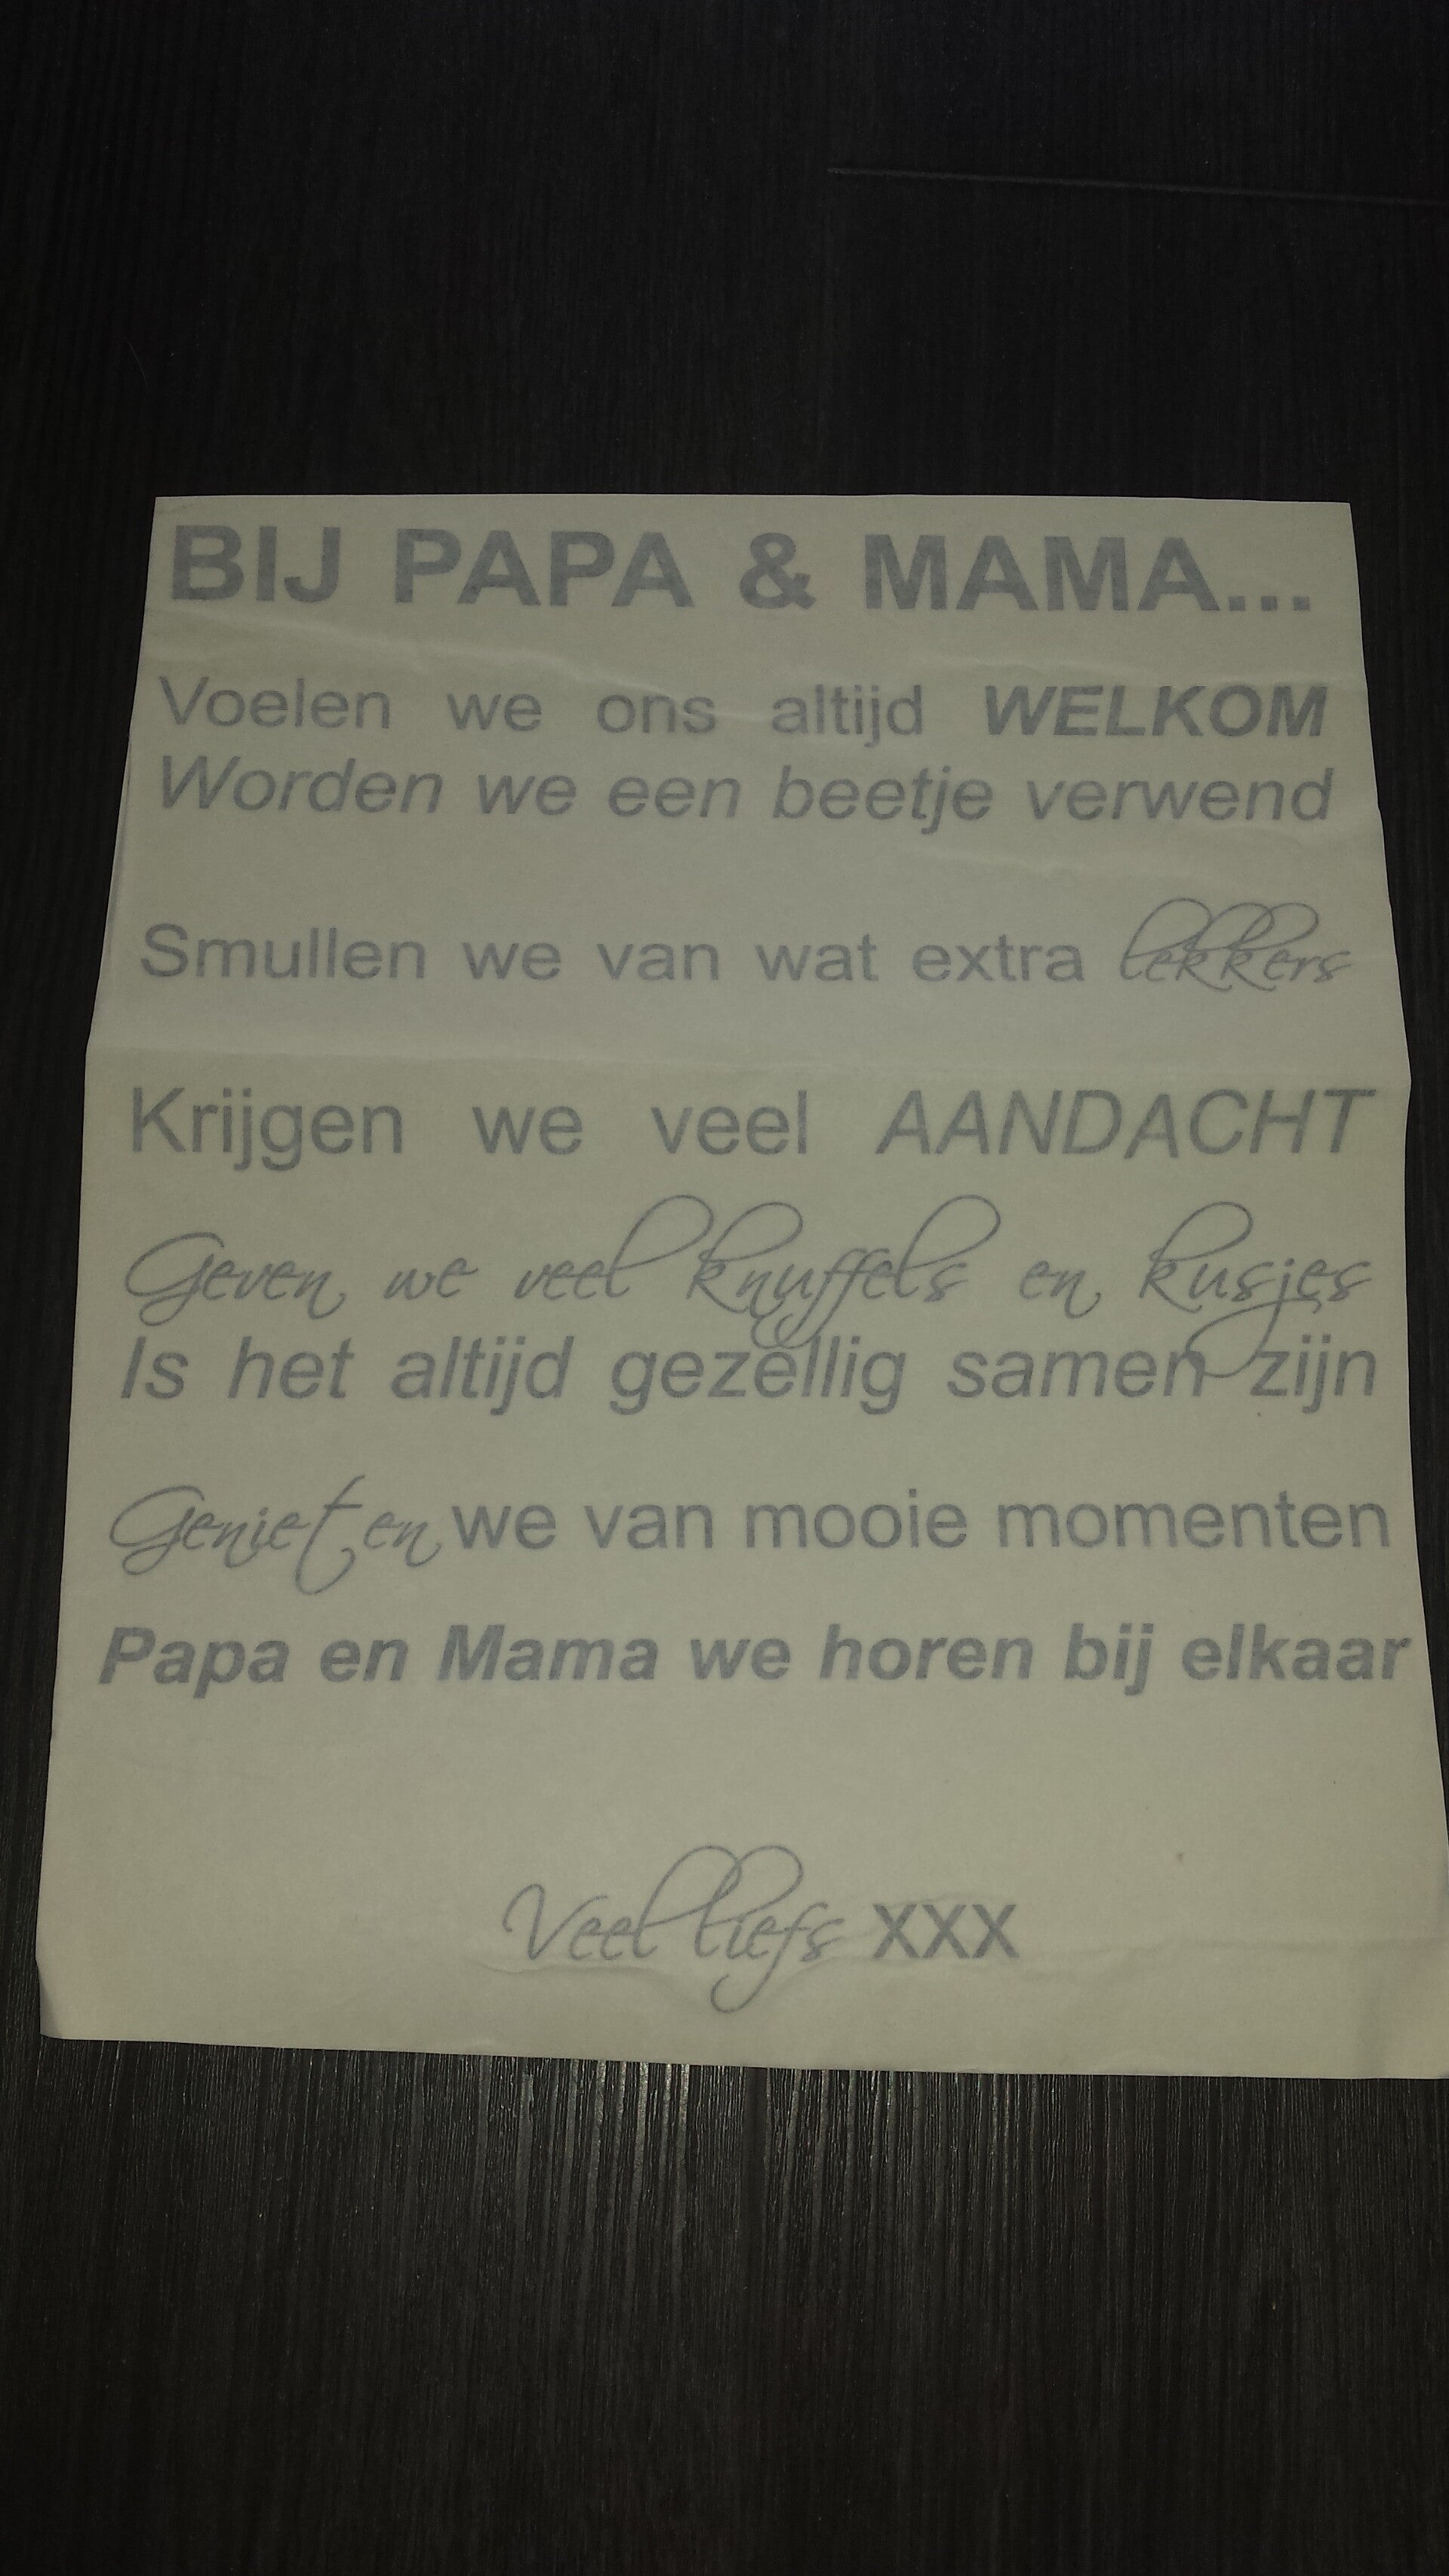 BIJ PAPA & MAMA...
Voelen we ons altijd WELKOM
Worden we een beetje verwend
Smullen we van wat extra lekkers
Krijgen we veel AANDACHT
Geven we veel knuffels en kusjes
Is het altijd gezellig samen zijn
Genieten we van mooie momenten
Papa en Mama we horen bij elkaar
Veel liefs XXX